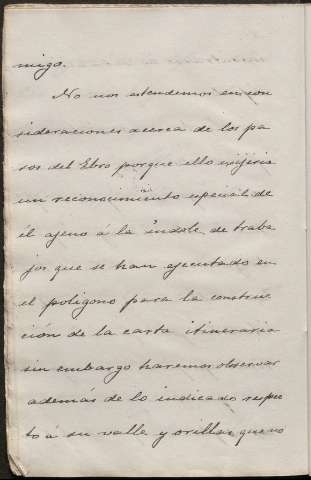 migo.
No nos estendemos en con
sideraciones acerca de los pa
sos del Ebro porque ello exijiria
un reconocimiento especial de
él ageno á la índole de traba
jos que se han ejecutado en
el poligono para la construc
ción de la carta itineraria
sin embargo haremos observar
además de lo indicado respec
to á su valle y orillas que no